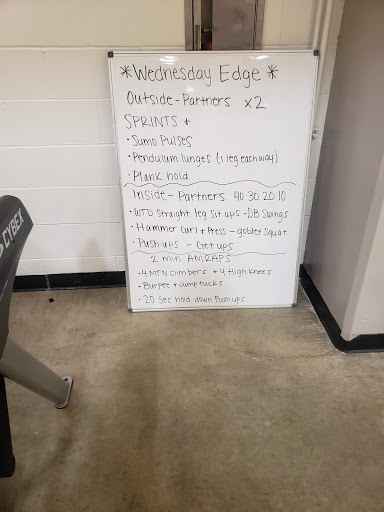 *Wednesday Edge*
Outside - Partners x2
SPRINTS +
• Sumo Pulses
• Pendulum lunges (1 leg each way)
• Plank hold
Inside - Partners 40 30 20 10
• WTD Straight leg sit ups - DB Swings
• Hammer Curl + Press - goblet Squat
• Push ups - Get ups
2 min AMRAPS
• 4 MTN Climbers + 4 High Knees
• Burpee + Jump tucks
• 20 Sec hold down Push ups
CYBEX